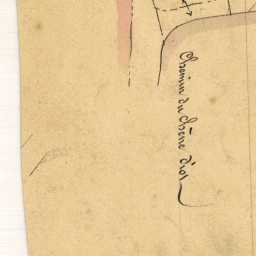 Chemin du Chêne d'or